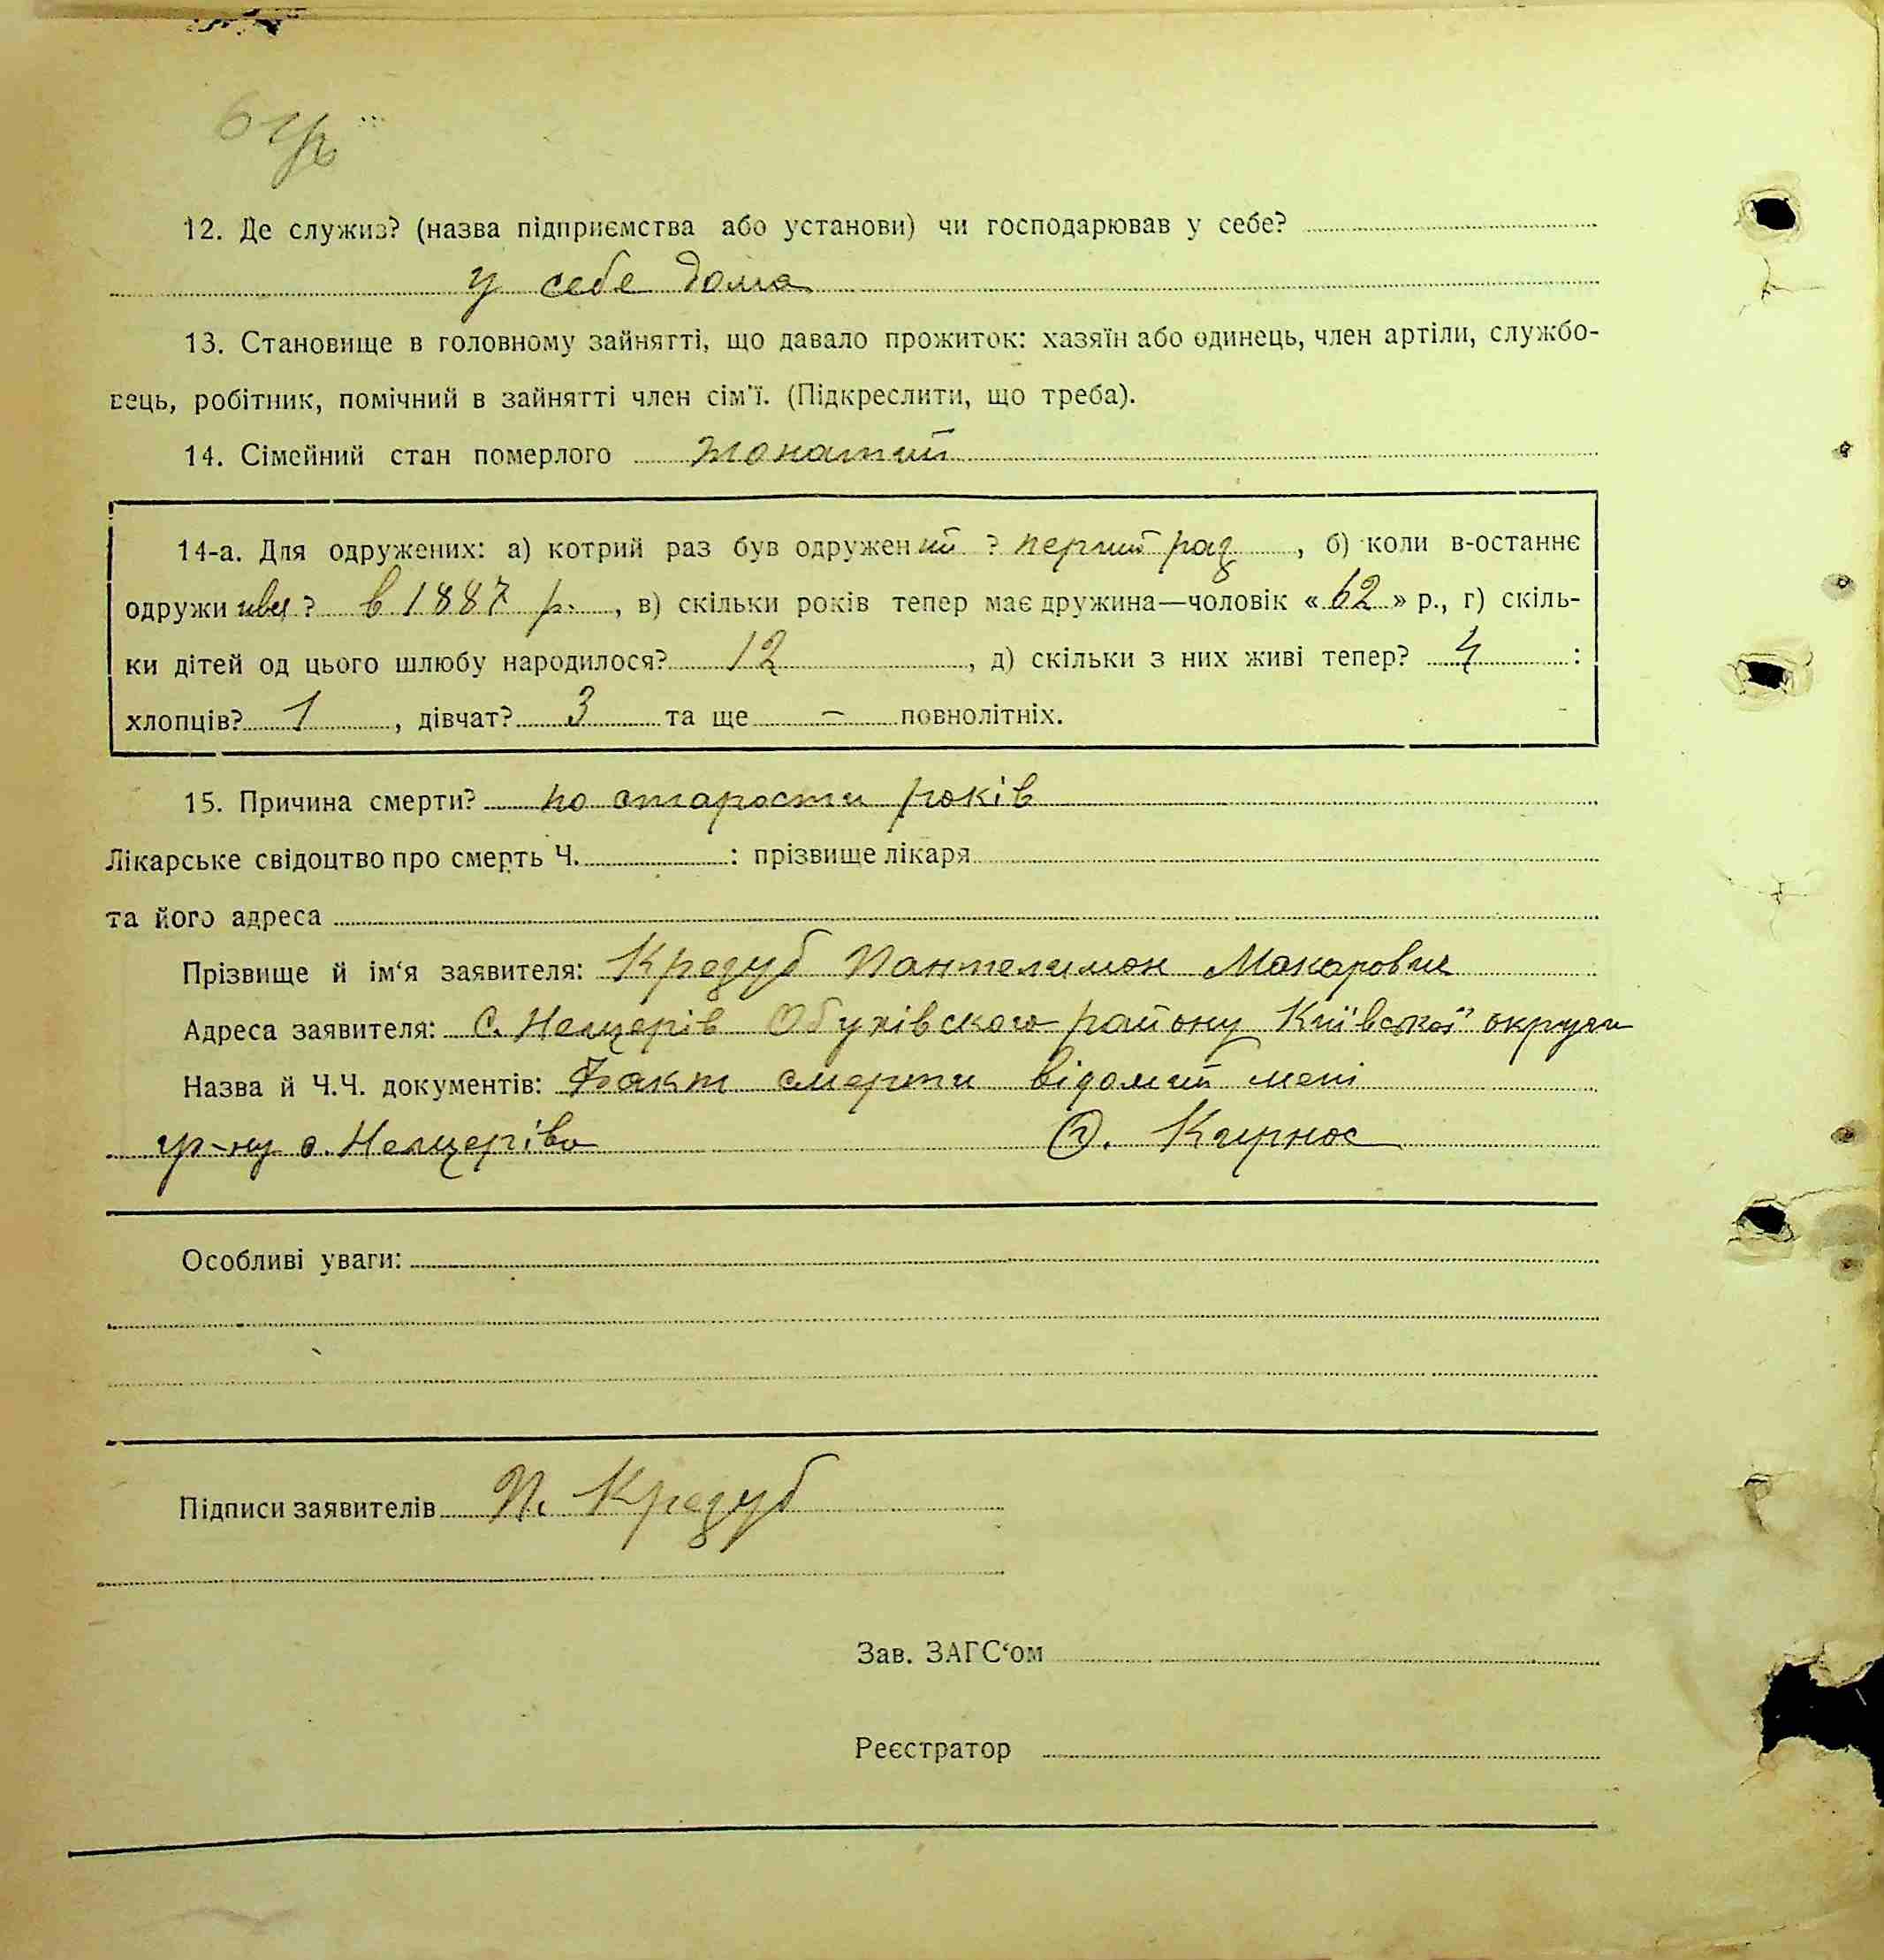 12. Де служив? (назва підприємства або установи) чи господарював у себе?
у себе дома
13. Становище в головному зайнятті, що давало прожиток: хазяїн або одинець, член артіли, службо-
вець, робітник, помічний в зайнятті член сім'ї. (Підкреслити, що треба).
14. Сімейний стан померлого жонатий
14-а. Для одружених: а) котрий раз був одружений ? перший раз, б) коли в-останнє
одружився? в 1887 р., в) скільки років тепер має дружина—чоловік «62» р., г) скіль-
ки дітей од цього шлюбу народилося? 12, д) скільки з них живі тепер? 4:
хлопців? 1, дівчат? 3 та ще – повнолітніх.
15. Причина смерти? по старости років
Лікарське свідоцтво про смерть Ч. : прізвище лікаря
та його адреса
Прізвище й ім‘я заявителя: Кродуб Пантелимон Макарович
Адреса заявителя: С. Нещерів Обухівского району Київської округи
Назва й Ч.Ч. документів: Факт смерти відомий мені
гр-ну с. Нещерів
Особливі уваги:
Підписи заявителів П. Кродуб
Зав. ЗАГС‘ом
Реєстратор